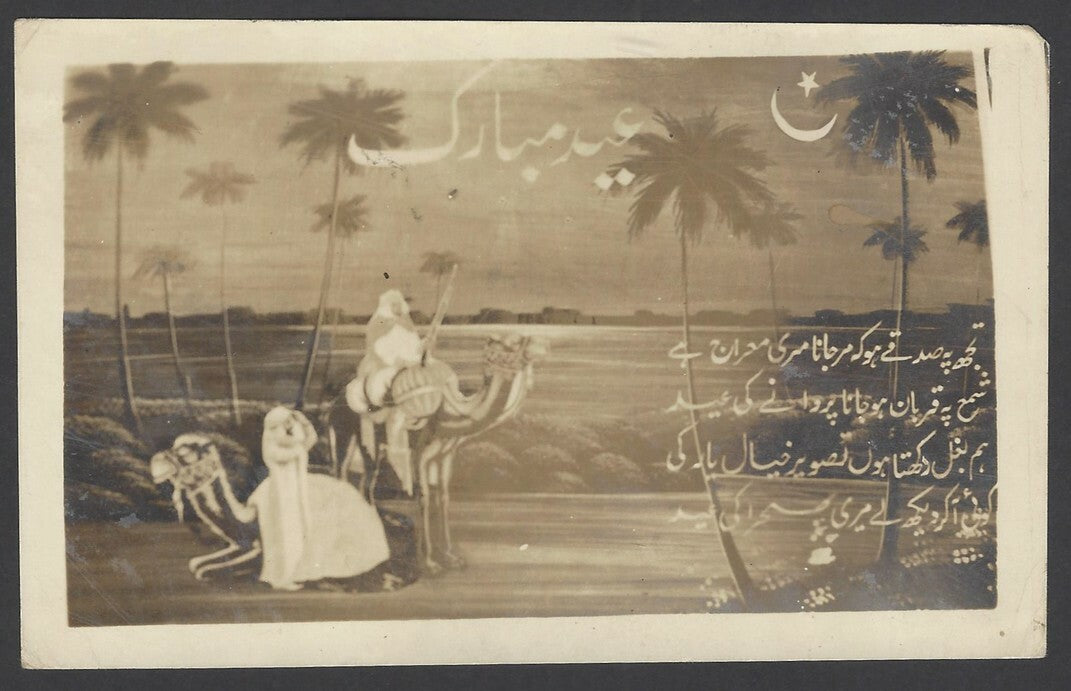 عید مبارک
تجھ پہ صدقے ہو کہ مر جانا مری معراج ہے
شمع پہ قربان ہو جانا پروانے کی عید
ہم بغل دکھتا ہوں تصویر خیال یار کی
کوئی آ کر دیکھ لے میری صحرا کی عید